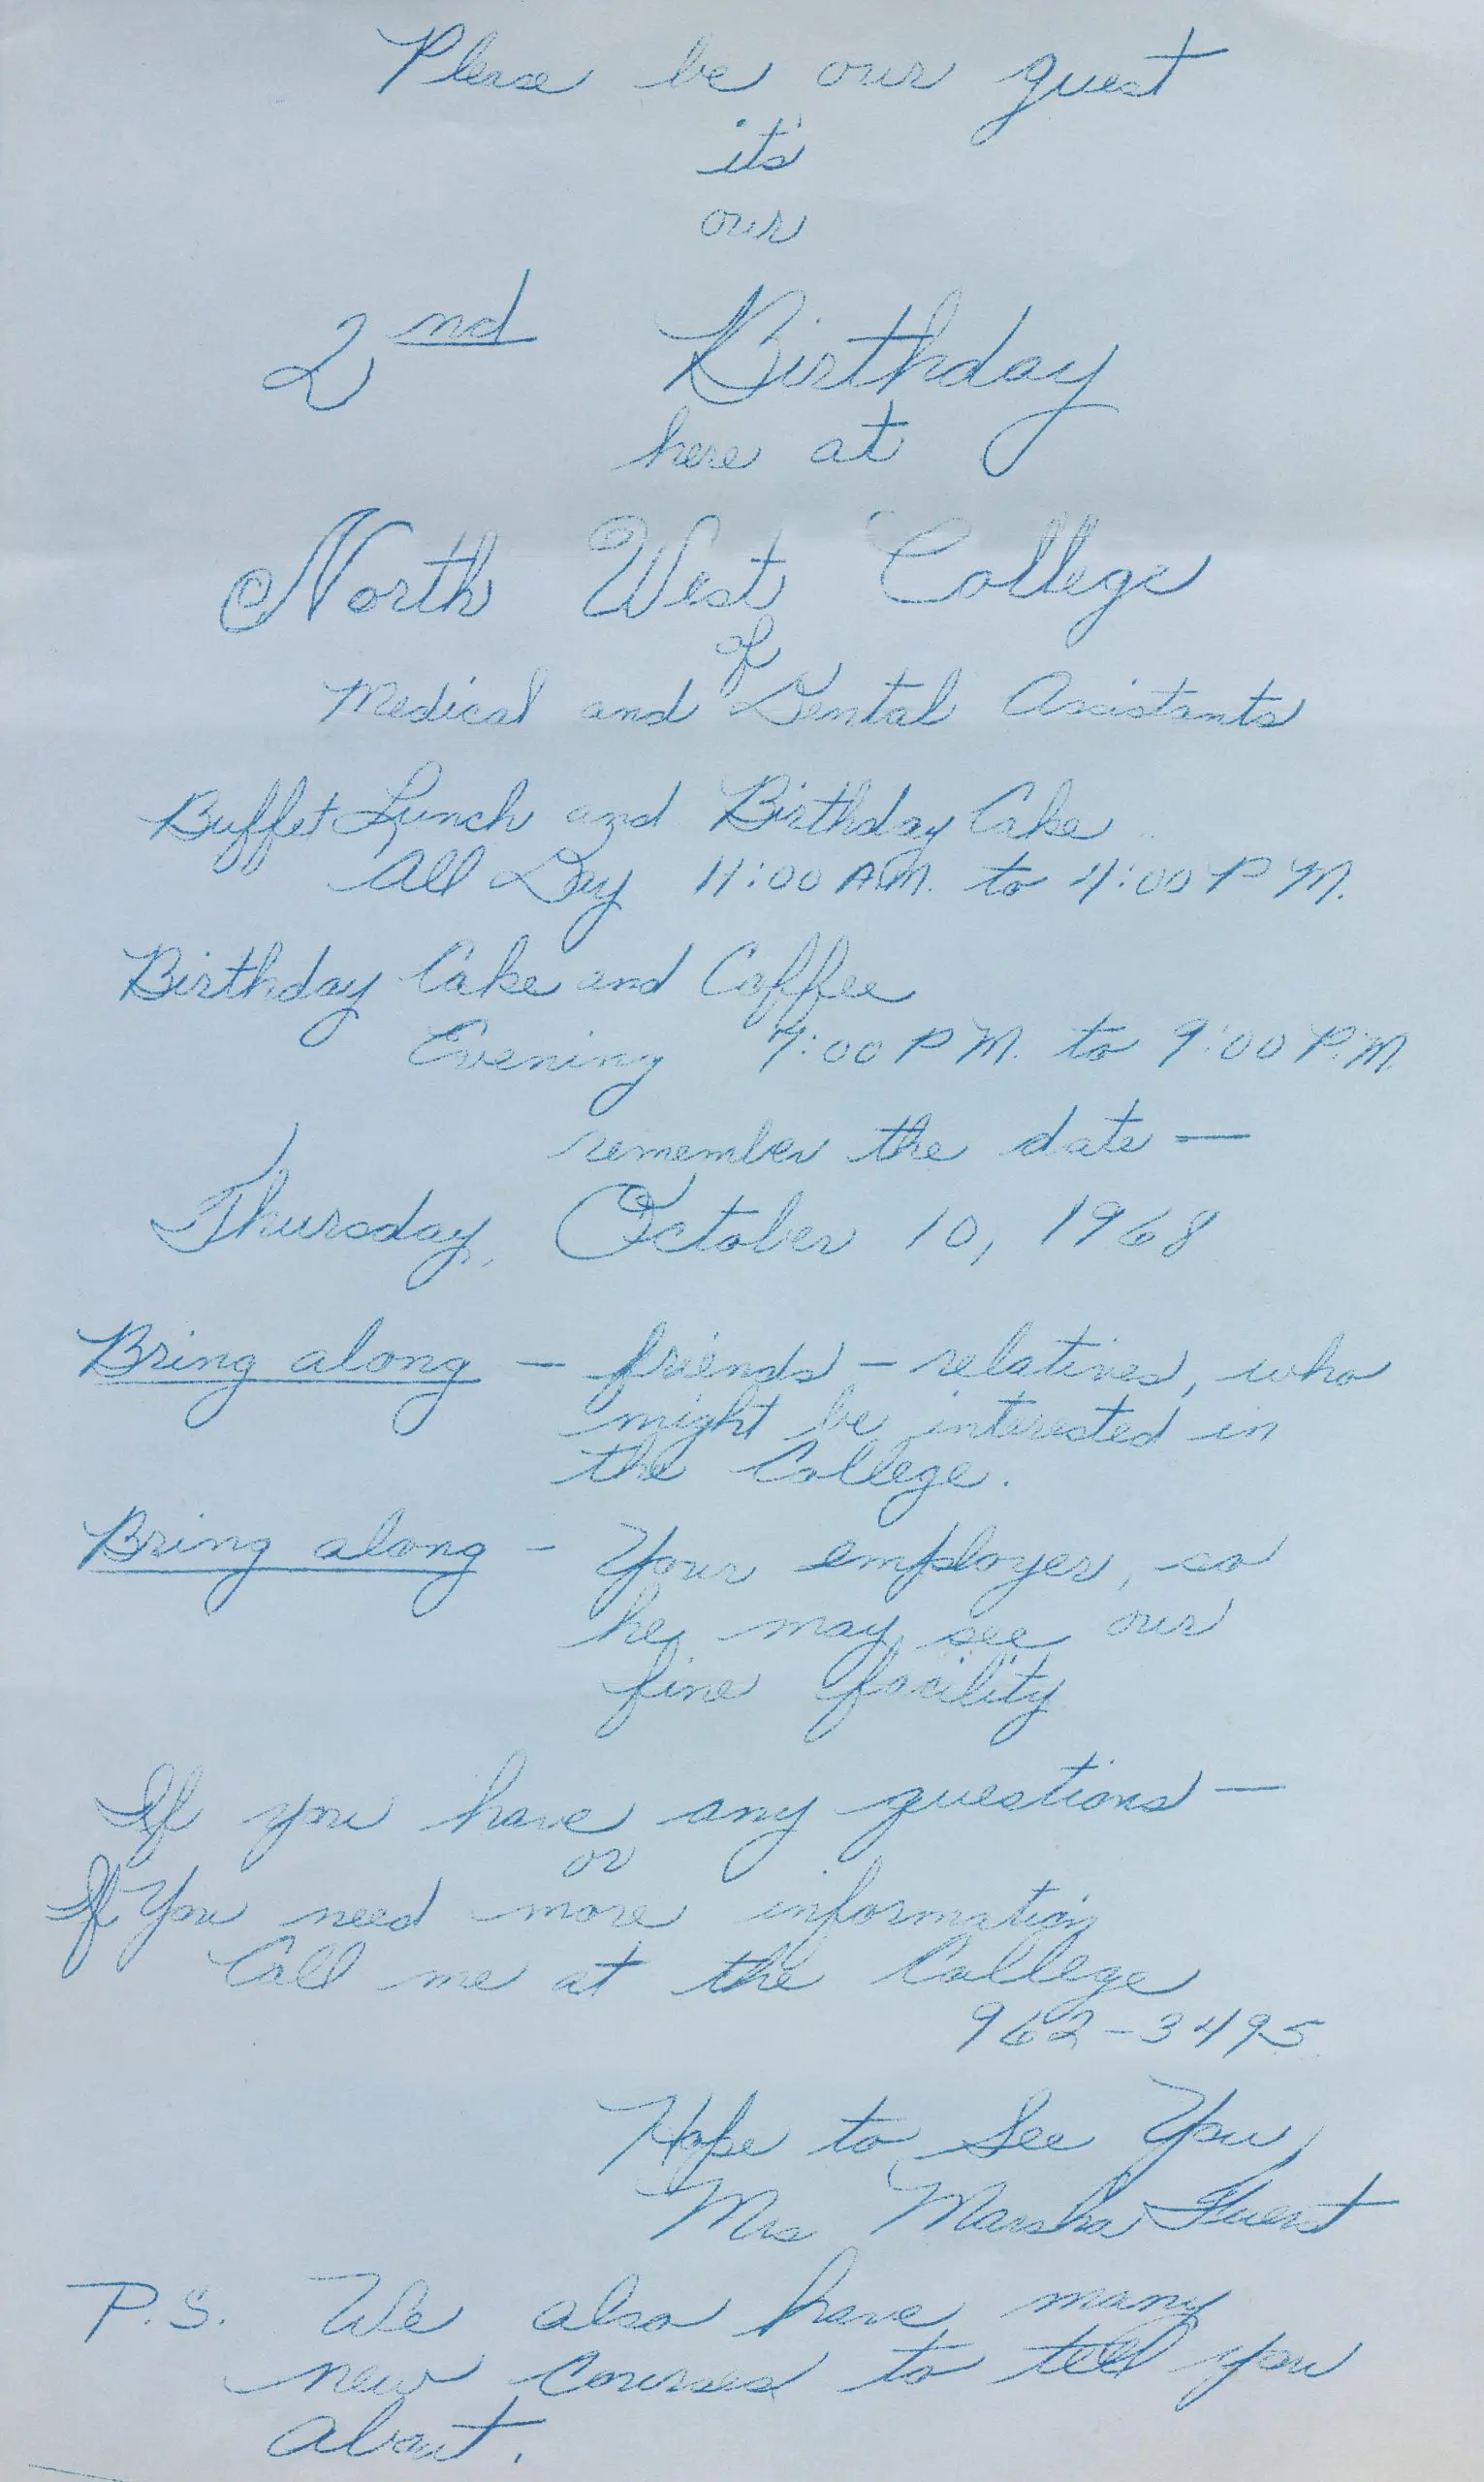 Please be our guest
it's
our
2nd Birthday
here at
North West College
of
Medical and Dental Assistants
Buffet Lunch and Birthday Cake
All Day 11:00 A.M. to 4:00 P.M.
Birthday Cake and Coffee
Evening 7:00 P.M. to 9:00 P.M.
remember the date —
Thursday, October 10, 1968
Bring along — friends — relatives, who
might be interested in
the College.
Bring along — Your employer, so
he may see our
fine facility
If you have any questions —
or
If You need more information
Call me at the College
962-3495
Hope to See You,
Mrs Marsha Fuerst
P.S. We also have many
new courses to tell you
about.